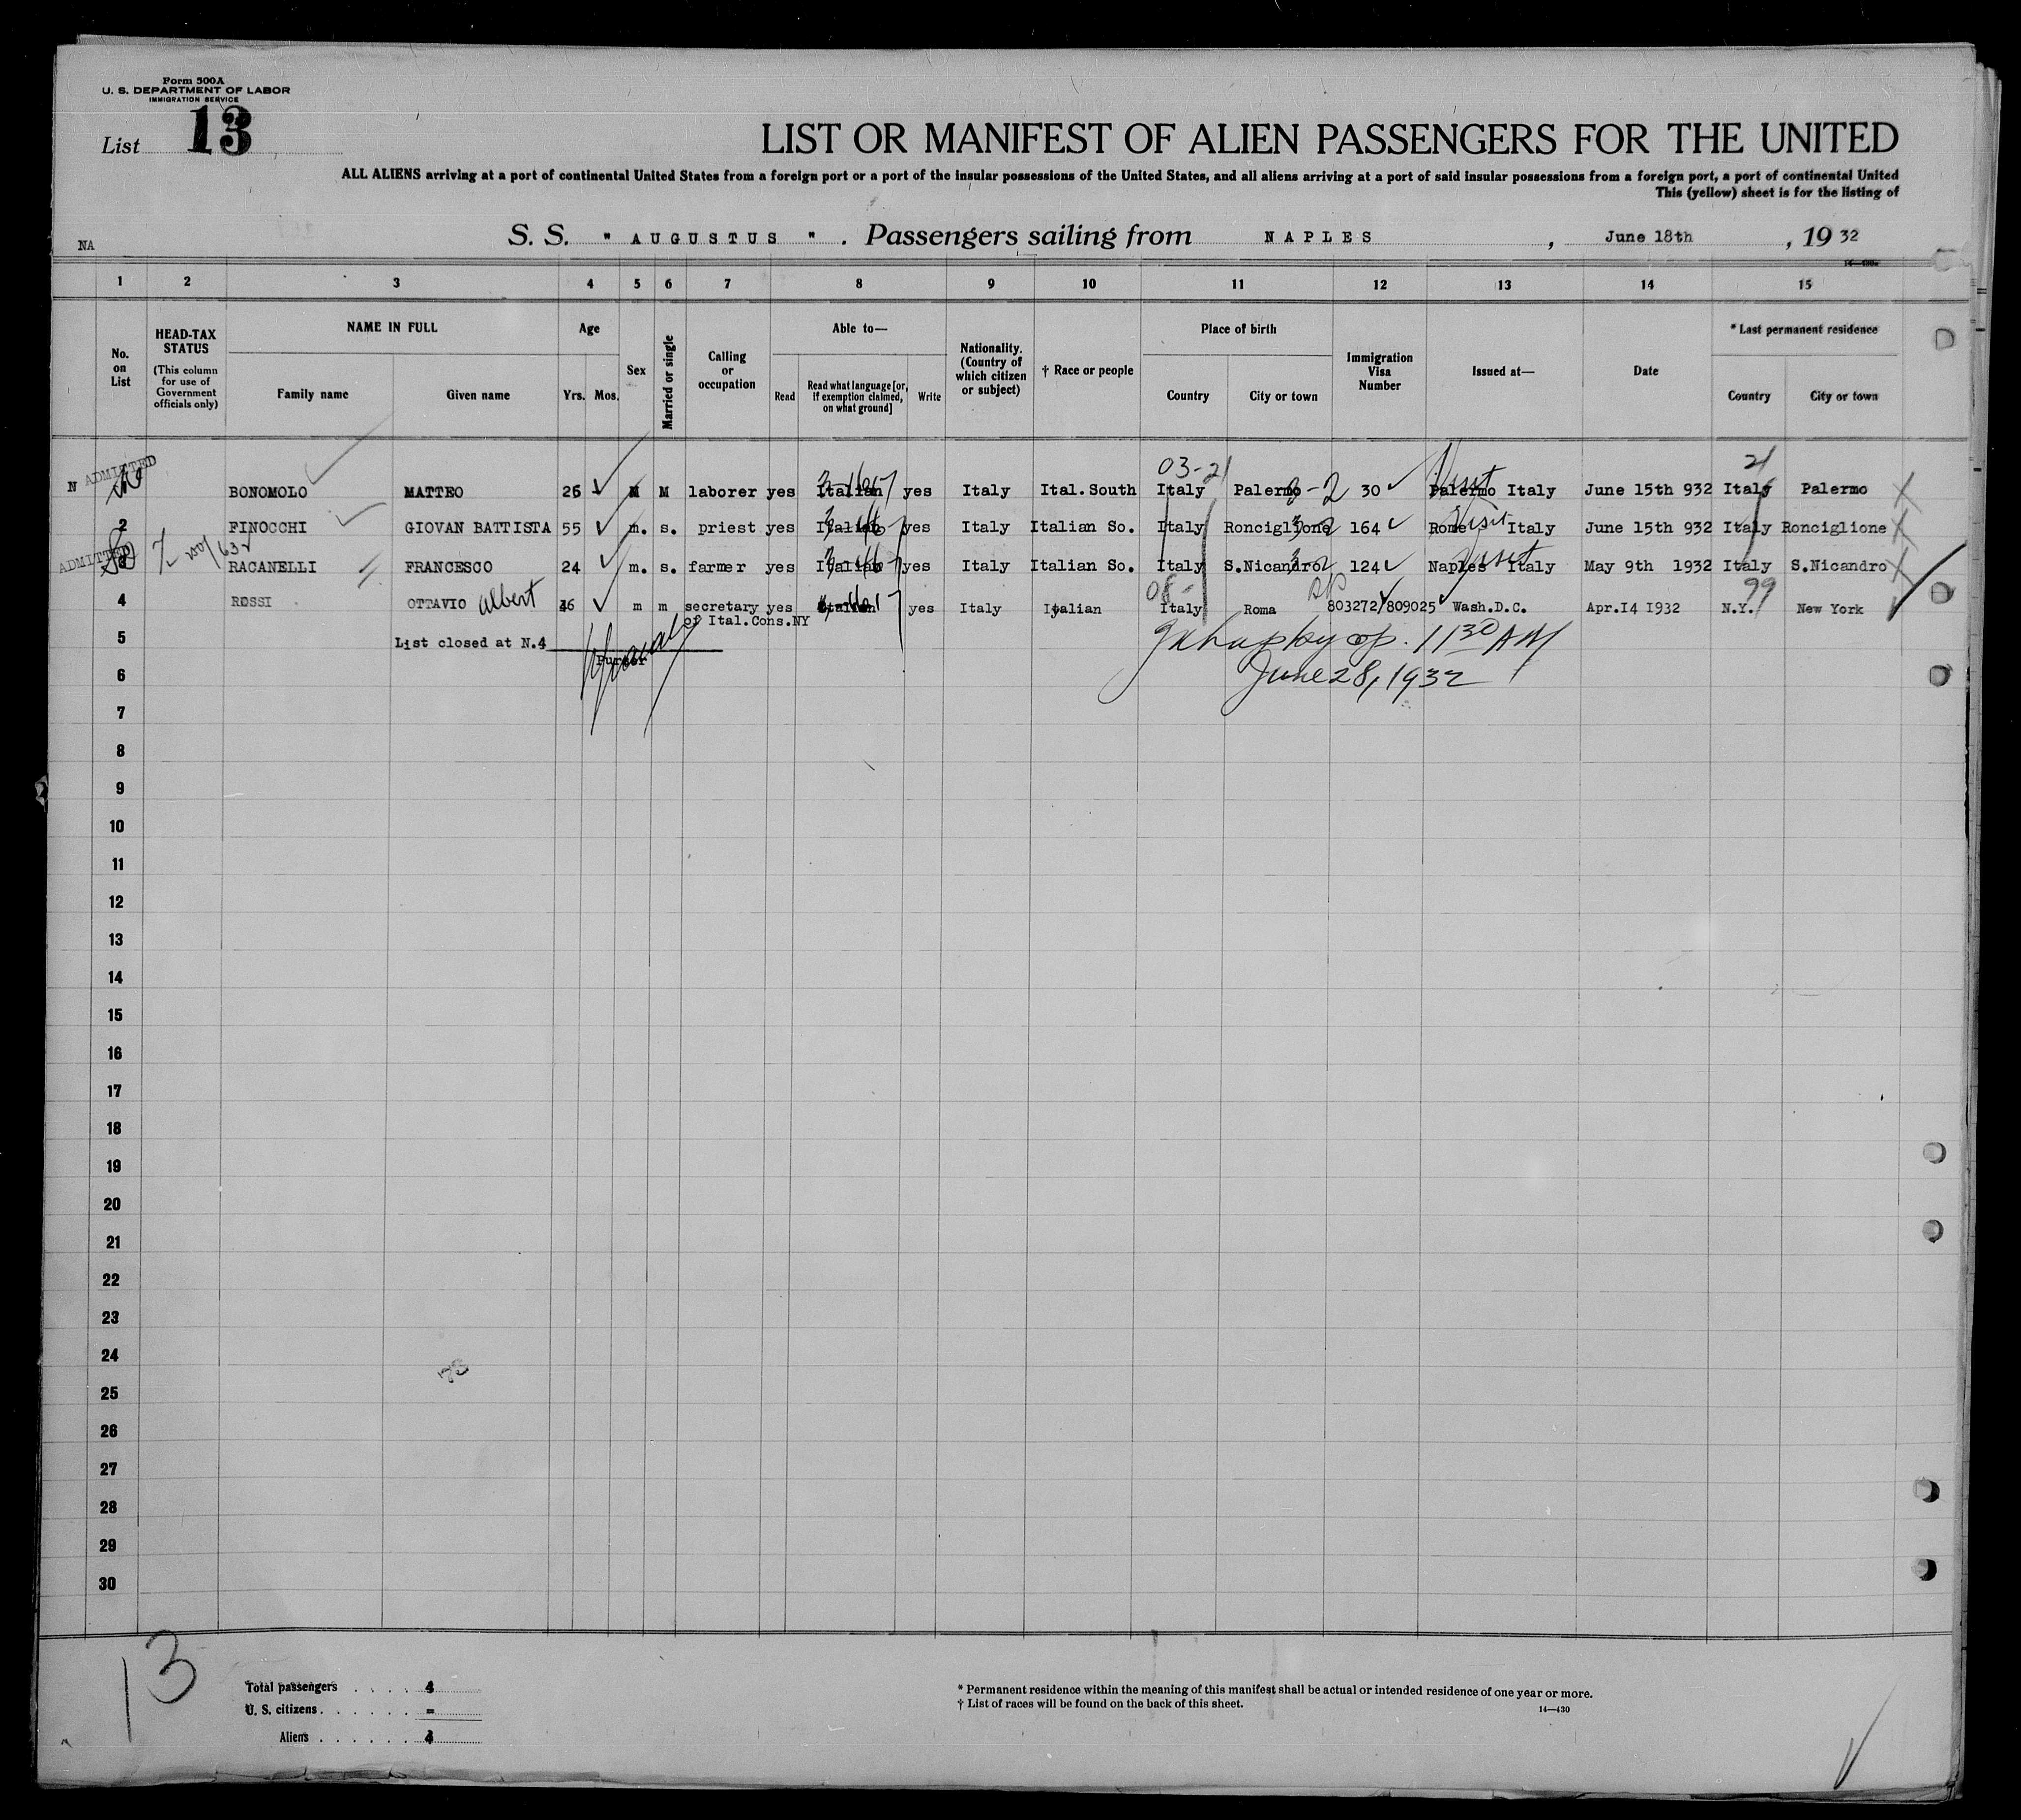 Form 500A
U. S. DEPARTMENT OF LABOR
IMMIGRATION SERVICE
List 13
LIST OR MANIFEST OF ALIEN PASSENGERS FOR THE UNITED
ALL ALIENS arriving at a port of continental United States from a foreign port or a port of the insular possessions of the United States, and all aliens arriving at a port of said insular possessions from a foreign port, a port of continental United
This (yellow) sheet is for the listing of
NA S. S. " AUGUSTUS " . Passengers sailing from NAPLES , June 18th , 19 32
1 2 3 4 5 6 7 8 9 10 11 12 13 14 15
No. on List
HEAD-TAX STATUS
(This column for use of Government officials only)
NAME IN FULL
Family name Given name
Age
Yrs. Mos.
Sex
Married or single
Calling or occupation
Able to—
Read Read what language [or, if exemption claimed, on what ground] Write
Nationality. (Country of which citizen or subject)
† Race or people
Place of birth
Country City or town
Immigration Visa Number
Issued at—
Date
* Last permanent residence
Country City or town
ADMITTED 03-21 Visit 21
N BONOMOLO MATTEO 26 M M laborer yes Italian yes Italy Ital.South Italy Palermo 30 Palermo Italy June 15th 932 Italy Palermo
2 FINOCCHI GIOVAN BATTISTA 55 m. s. priest yes Italian yes Italy Italian So. Italy Ronciglione 164 Rome Visit Italy June 15th 932 Italy Ronciglione
ADMITTED 3 RACANELLI FRANCESCO 24 m. s. farmer yes Italian yes Italy Italian So. Italy S.Nicandro 124 Naples Visit Italy May 9th 1932 Italy S.Nicandro
08- 99
4 ROSSI OTTAVIO Albert 36 m m secretary yes Italian yes Italy Italian Italy Roma 803272/809025 Wash.D.C. Apr.14 1932 N.Y. New York
of Ital.Cons.NY
5 List closed at N.4 11 30 AM
Purser
6 June 28, 1932
7
8
9
10
11
12
13
14
15
16
17
18
19
20
21
22
23
24
25
26
27
28
29
30
13
Total passengers . . . . 4
U. S. citizens . . . . . . =
Aliens . . . . . . 4
* Permanent residence within the meaning of this manifest shall be actual or intended residence of one year or more.
† List of races will be found on the back of this sheet.
14—430